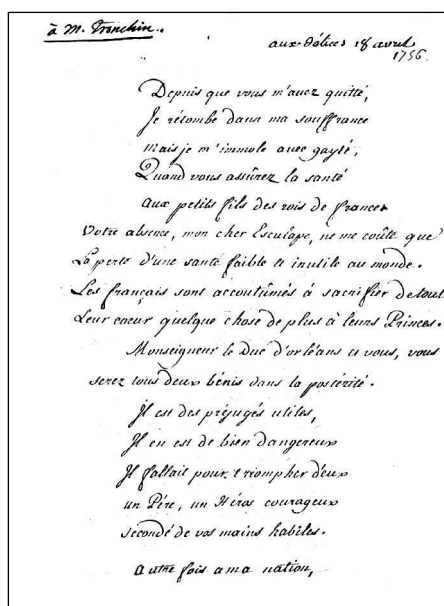 à M. Tronchin.
aux délices 18 avril
1756.
Depuis que vous m'avez quitté,
Je retombe dans ma souffrance
mais je m'immole avec gayté,
Quand vous assûrez la santé
aux petits fils des rois de france.
Votre absence, mon cher Esculape, ne me coûte que
La perte d'une santé faible et inutile au monde.
Les français sont accoutumés à sacrifier de tout
Leur coeur quelque chose de plus à leurs Princes.
Monseigneur le Duc d'orléans et vous, vous
serez tous deux bénis dans la postérité.
Il est des préjugés utiles,
Il en est de bien dangereux
Il fallait pour triompher d'eux
un Pére, un Héros courageux
secondé de vos mains habiles.
autre fois a ma nation,